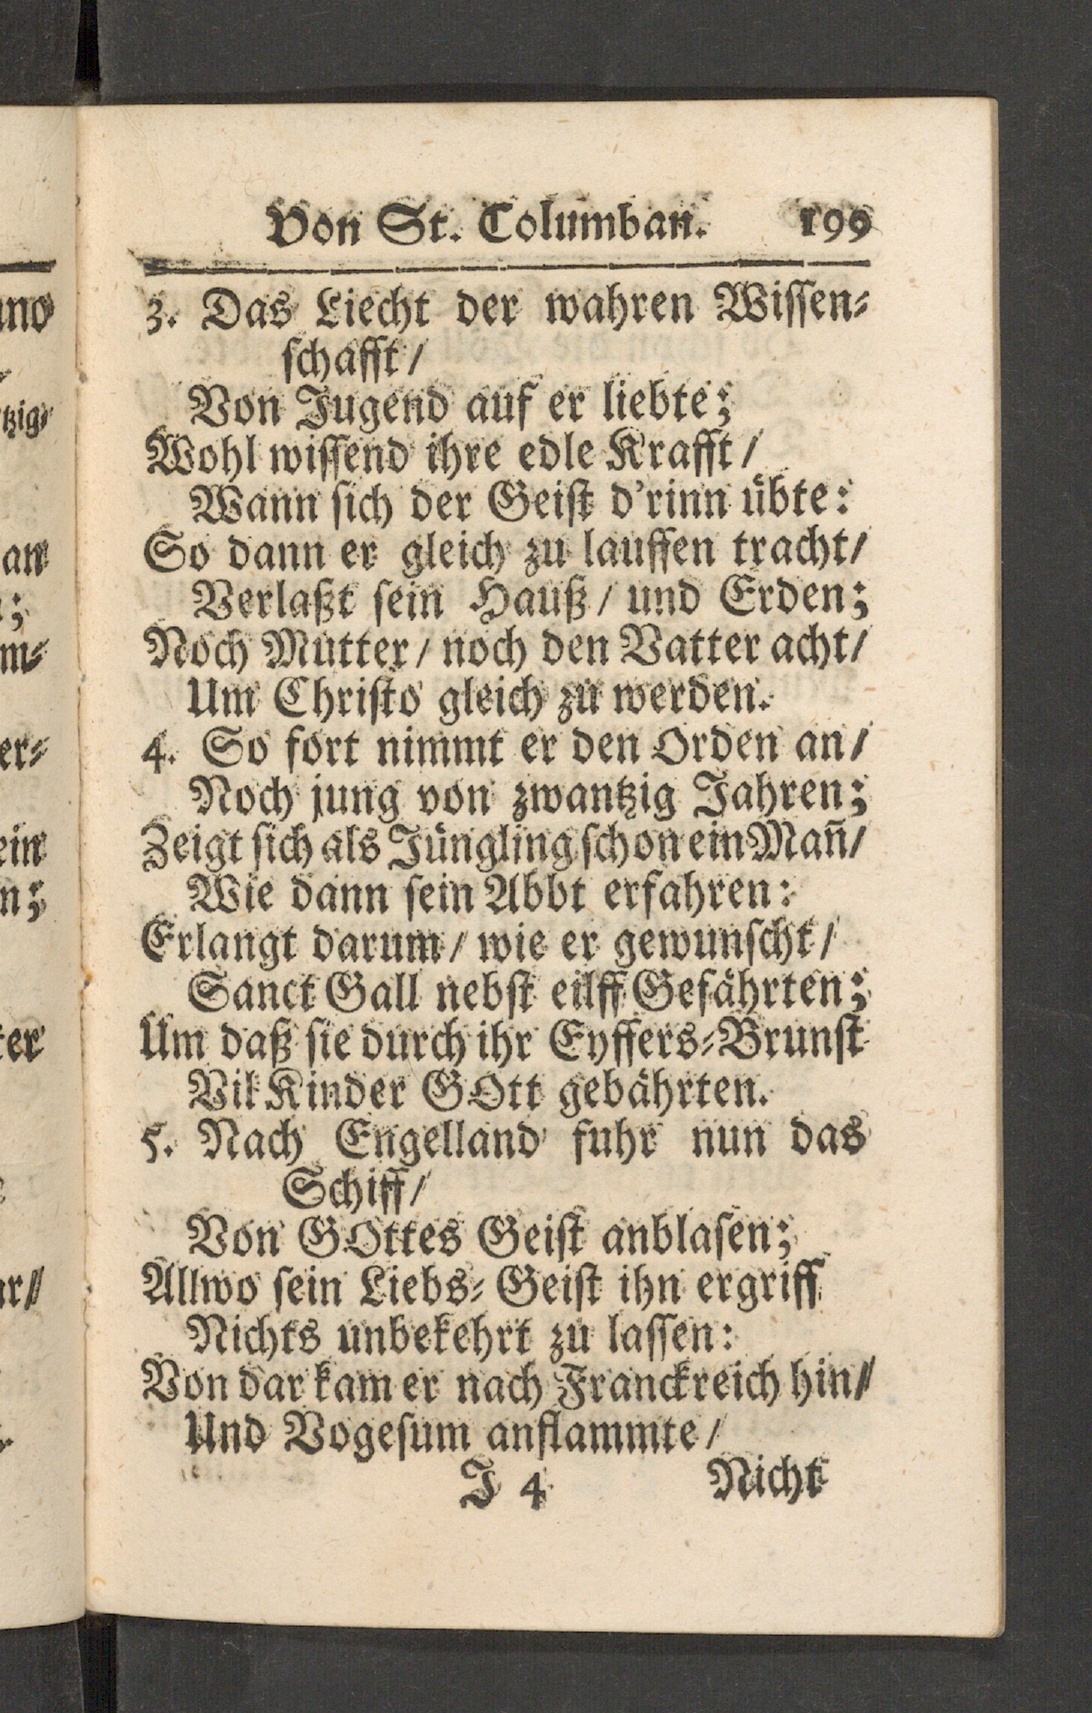 Von St. Columban. 199
3. Das Liecht der wahren Wissen-
schafft /
Von Jugend auf er liebte;
Wohl wissend ihre edle Krafft /
Wann sich der Geist d'rinn übte:
So dann er gleich zu lauffen tracht /
Verlaßt sein Hauß / und Erden;
Noch Mutter / noch den Vatter acht /
Um Christo gleich zu werden.
4. So fort nimmt er den Orden an /
Noch jung von zwantzig Jahren;
Zeigt sich als Jüngling schon ein Mañ /
Wie dann sein Abbt erfahren:
Erlangt darum / wie er gewunscht /
Sanct Gall nebst eilff Gefährten;
Um daß sie durch ihr Eyffers-Brunst
Vil Kinder GOtt gebährten.
5. Nach Engelland fuhr nun das
Schiff /
Von GOttes Geist anblasen;
Allwo sein Liebs-Geist ihn ergriff
Nichts unbekehrt zu lassen:
Von dar kam er nach Franckreich hin //
Und Vogesum anflammte /
J 4 Nicht